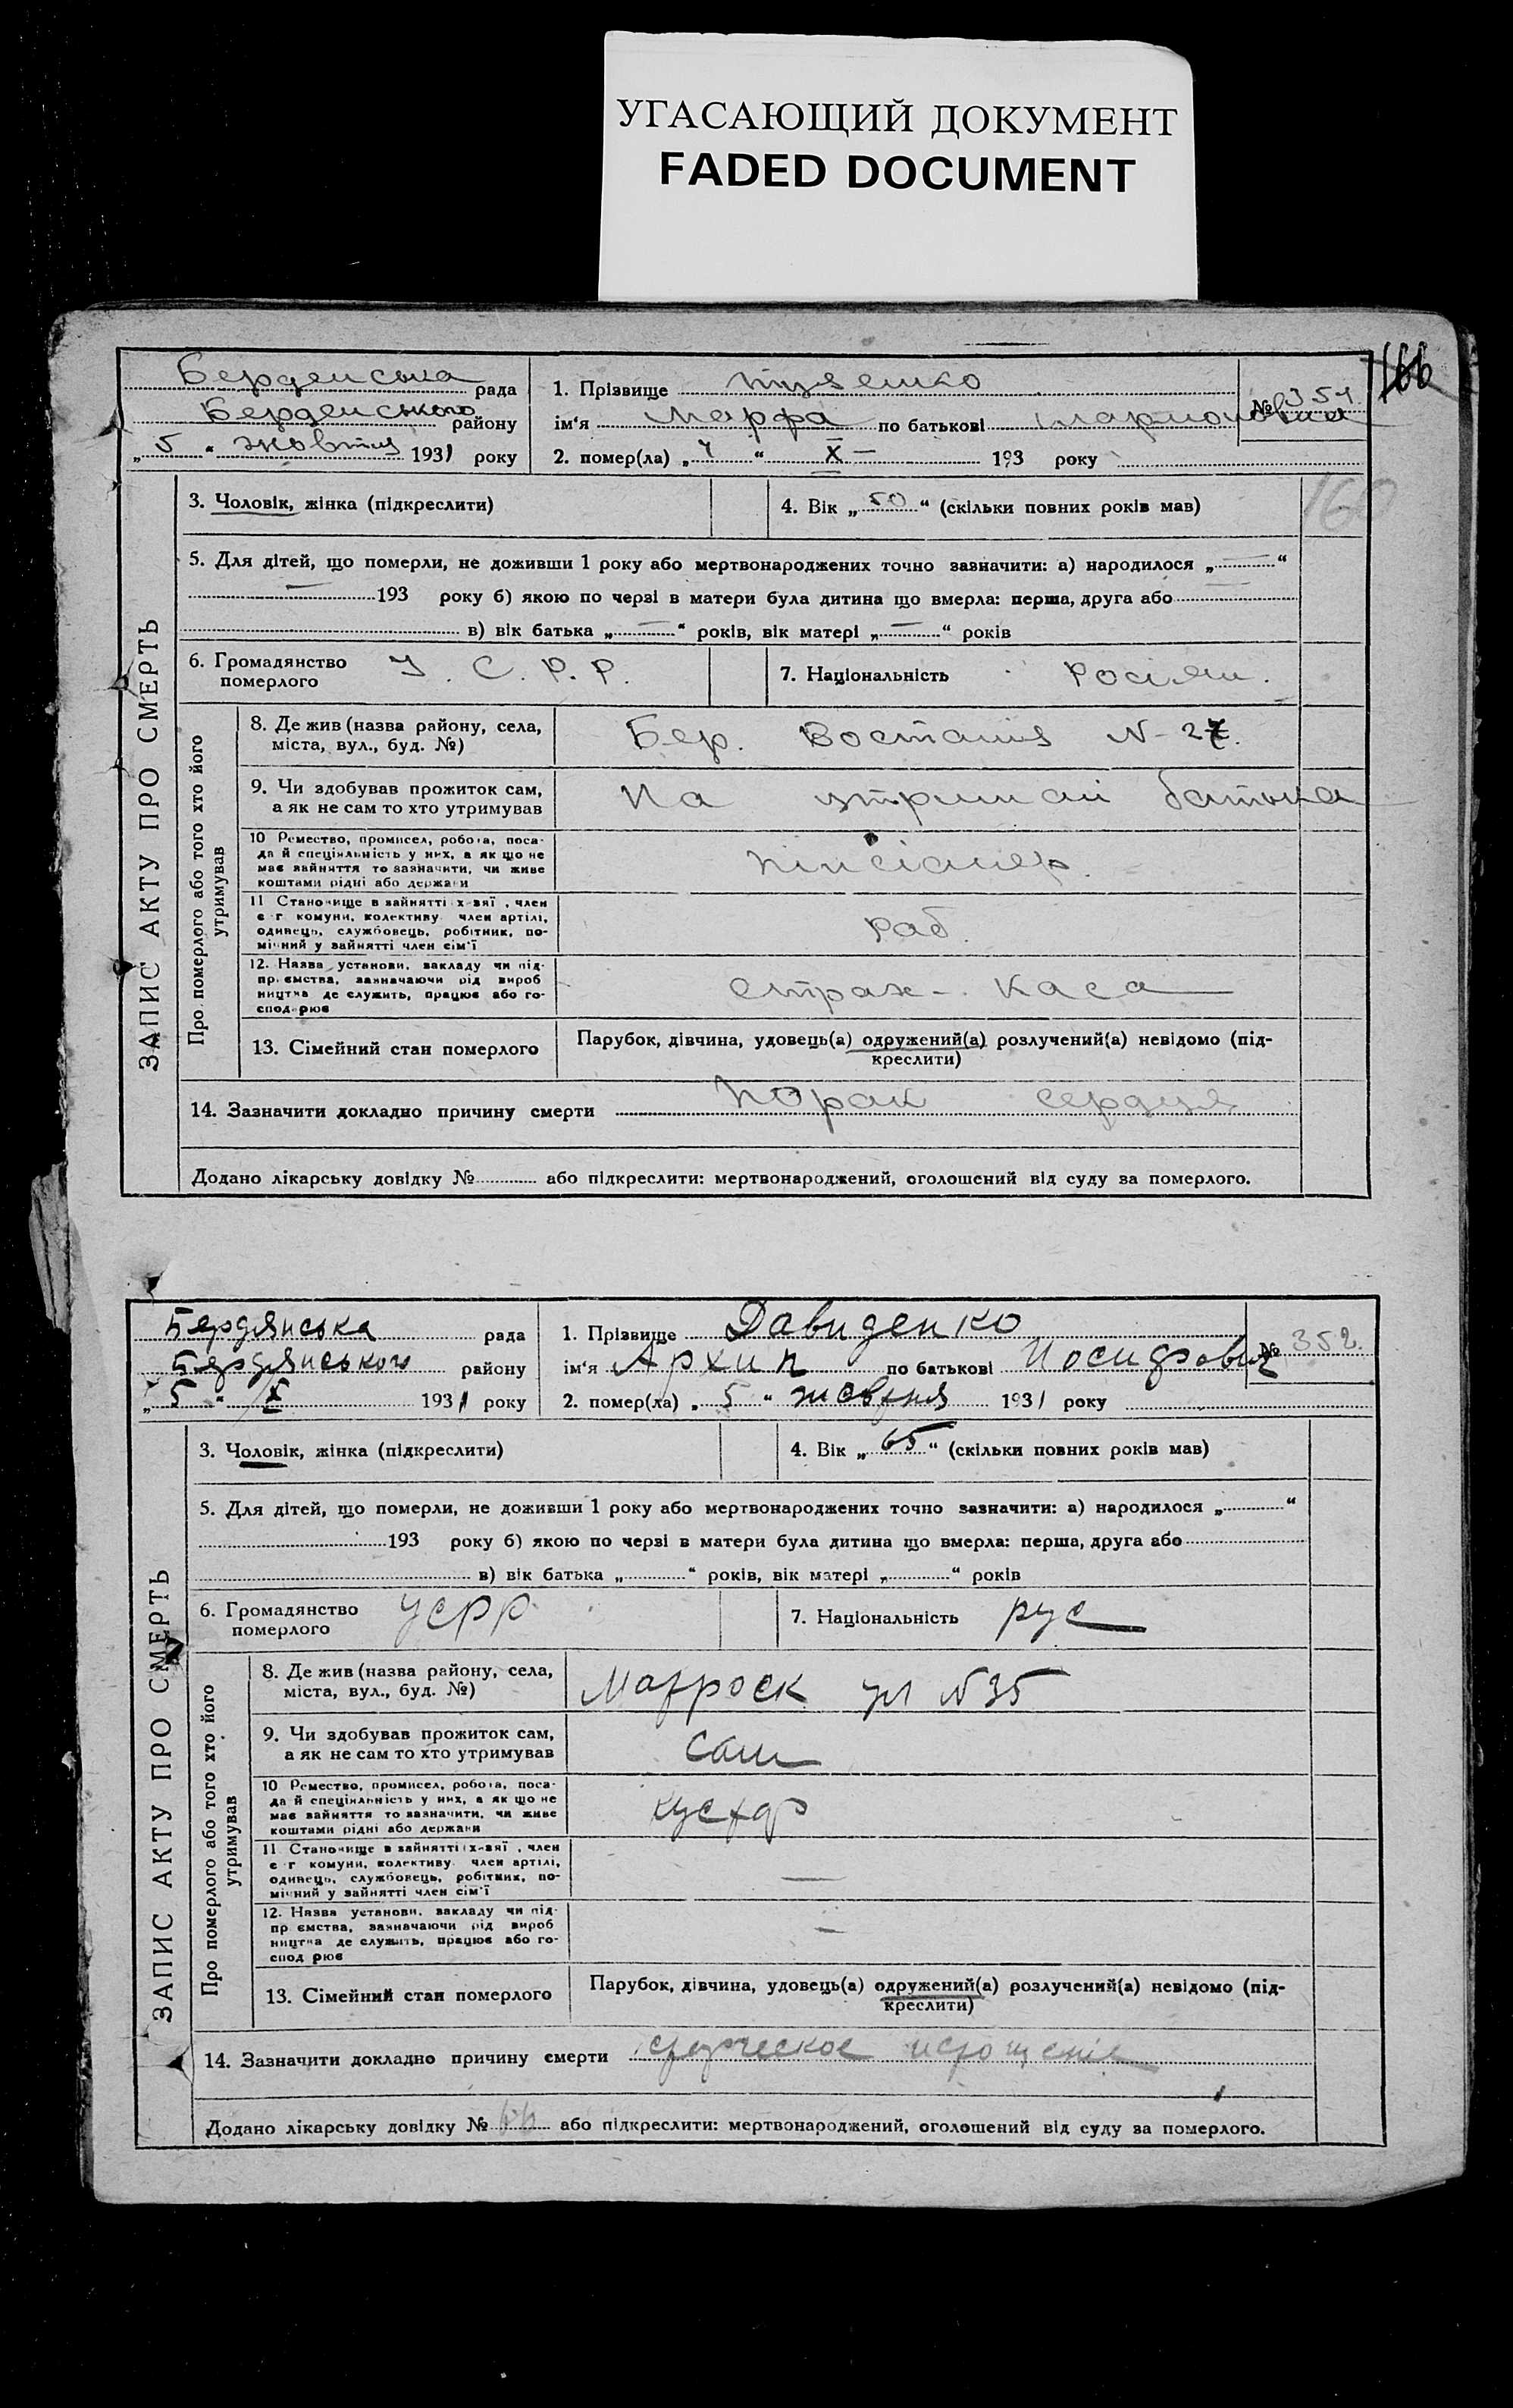 УГАСАЮЩИЙ ДОКУМЕНТ
FADED DOCUMENT
166
Берденська рада
Берденського району
„5“ жовтня 1931 року
1. Прізвище
ім'я Марфа по батькові Иларионовна
2. помер(ла) „4“ X — 193 року
№ 351.
160
ЗАПИС АКТУ ПРО СМЕРТЬ
3. Чоловік, жінка (підкреслити)
4. Вік „50“ (скільки повних років мав)
5. Для дітей, що померли, не доживши 1 року або мертвонароджених точно зазначити: а) народилося „—“
— 193 року б) якою по черзі в матери була дитина що вмерла: перша, друга або —
в) вік батька „—“ років, вік матері „—“ років
6. Громадянство
померлого
У. С. Р. Р.
7. Національність
Росіян.
Про померлого або того хто його
утримував
8. Де жив (назва району, села,
міста, вул., буд. №)
Бер. Востания N-27.
9. Чи здобував прожиток сам,
а як не сам то хто утримував
На утриман батька
10 Ремество, промисел, робота, поса-
да й спеціяльність у них, а як що не
має зайняття то зазначити, чи живе
коштами рідні або держави
пінсіанер.
11 Становище в зайнятті х-вяї, член
с-г комуни, колективу член артілі,
одинець, службовець, робітник, по-
мічний у зайнятті член сім'ї
раб.
12. Назва установи, закладу чи під-
приємства, зазначаючи рід вироб
ництва де служить, працює або го-
сподарює
страх-. каса
13. Сімейний стан померлого
Парубок, дівчина, удовець(а) одружений(а) розлучений(а) невідомо (під-
креслити)
14. Зазначити докладно причину смерти Порок сердця
Додано лікарську довідку № або підкреслити: мертвонароджений, оголошений від суду за померлого.
Бердянська рада
Бердянського району
„5“ X 1931 року
1. Прізвище Давиденко
ім'я Архип по батькові Иосифович
2. помер(ла) „5“ жовтня 1931 року
№ 352.
ЗАПИС АКТУ ПРО СМЕРТЬ
3. Чоловік, жінка (підкреслити)
4. Вік „65“ (скільки повних років мав)
5. Для дітей, що померли, не доживши 1 року або мертвонароджених точно зазначити: а) народилося „ “
193 року б) якою по черзі в матери була дитина що вмерла: перша, друга або
в) вік батька „ “ років, вік матері „ “ років
6. Громадянство
померлого
УСРР
7. Національність
рус
Про померлого або того хто його
утримував
8. Де жив (назва району, села,
міста, вул., буд. №)
Матроск ул N35
9. Чи здобував прожиток сам,
а як не сам то хто утримував
сам
10 Ремество, промисел, робота, поса-
да й спеціяльність у них, а як що не
має зайняття то зазначити, чи живе
коштами рідні або держави
кустар
11 Становище в зайнятті х-вяї, член
с-г комуни, колективу член артілі,
одинець, службовець, робітник, по-
мічний у зайнятті член сім'ї
—
12. Назва установи, закладу чи під-
приємства, зазначаючи рід вироб
ництва де служить, працює або го-
сподарює
—
13. Сімейний стан померлого
Парубок, дівчина, удовець(а) одружений(а) розлучений(а) невідомо (під-
креслити)
14. Зазначити докладно причину смерти старческое
Додано лікарську довідку № або підкреслити: мертвонароджений, оголошений від суду за померлого.